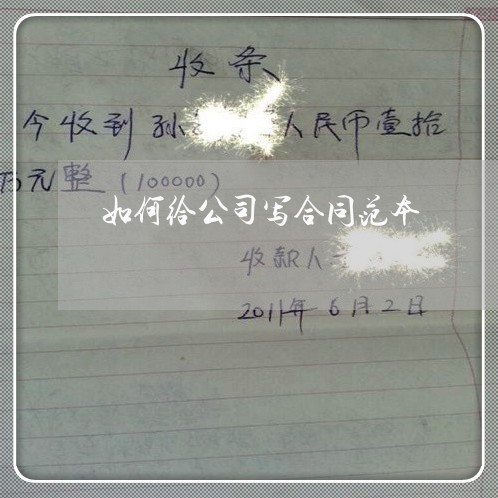 收条
今收到孙 人民币壹拾
万元整（100000）
如何给公司写合同范本
收款人
2011年6月2日